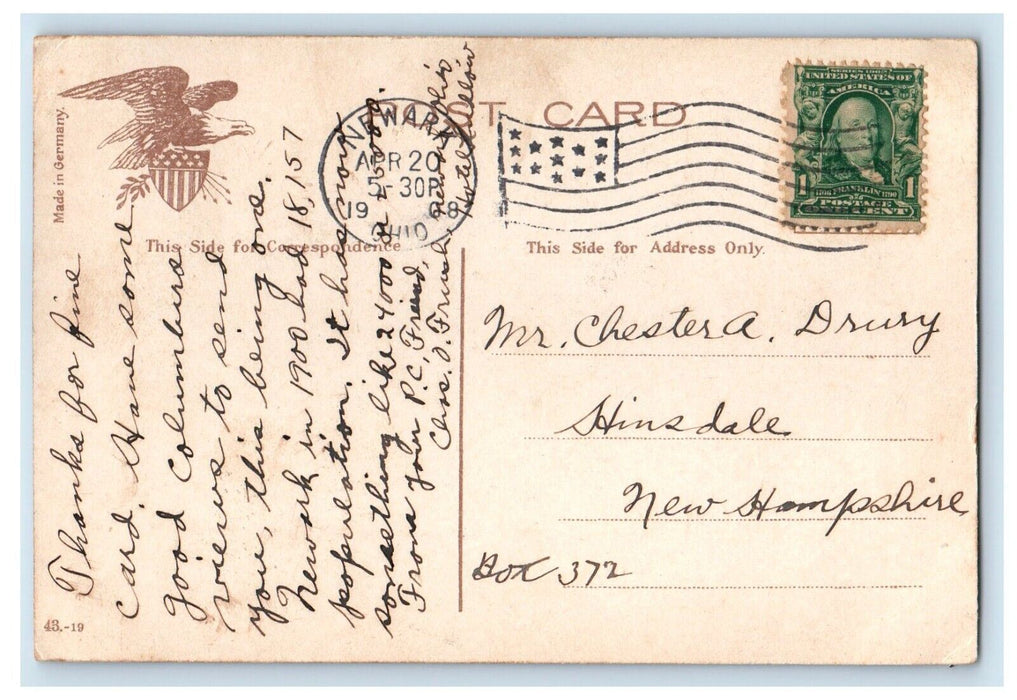 Made in Germany.
POST CARD
NEWARK
APR 20
5-30P
1908
OHIO
SERIES 1902
UNITED STATES OF
AMERICA
1 1706 FRANKLIN 1790 1
POSTAGE
ONE CENT
This Side for Correspondence
This Side for Address Only.
Thanks for fine
card. Have some
good Columbus
views to send
you, this being one.
Newark in 1900 had 18,157
population. It has now
something like 24000 or 25000.
From your P.C. Friend,
Chas. O. Frush, Newark, Ohio
Mr. Chester A. Drury
Hinsdale
New Hampshire
Box 372
43.-19